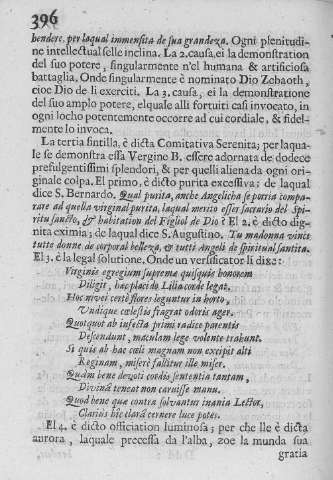 396
hendere, per laqual immensita de sua grandeza. Ogni plenitudi-
ne intellectual selle inclina. La 2. causa, ei la demonstration
del suo potere, singularmente n'el humana & artificiosa
battaglia, Onde singularmente è nominato Dio Zebaoth,
cioe Dio de li exerciti. La 3. causa, ei la demonstratione
del suo amplo potere, elquale alli fortuiti casi invocato, in
ogni locho potentemente occorre ad cui cordiale, & fidel-
mente lo invoca.
La tertia sintilla, è dicta Comitativa Serenita; per laqua-
le se demonstra essa Vergine B. essere adornata de dodece
presulgentissimi splendori, & per quelli aliena da ogni ori-
ginale colpa. El primo, è dicto purita excessiva; de laqual
dice S. Bernardo. Qual purita, anche Angelicha se poria compa-
rare ad quella virginal purita, laqual merito esser sacrario del Spi-
ritu sancto, & habitation del Figliol de Dio? El 2. è dicto dig-
nita eximia; de laqual dice S. Augustino. Tu madonna vinci
tutte donne de corporal belleza, & tutti Angeli de spiritual santita.
El 3. è la legal solutione, Onde un versificator li dixe:
Virginis egregium supremæ quisquis honorem
Diligit, hæc placido Lilia corde legat.
Hoc nivei certè flores leguntur in horto,
Undique cœlestis fragrat odoris ager.
Quotquot ab infecta primi radice parentis
Descendunt, maculam lege volente trahunt.
Si quis ab hac cœli magnam non excipit alti
Reginam, miserè fallitur ille miser.
Quàm bene devoti cordis sententia tantam,
Divinâ teneat non caruisse manu.
Quod bene quæ contra solvantur inania Lector,
Clarius hic clarâ cernere luce potes.
El 4. è dicto officiation luminosa; per che lle è dicta
aurora, laquale precessa da l'alba, zoe la munda sua
gratia